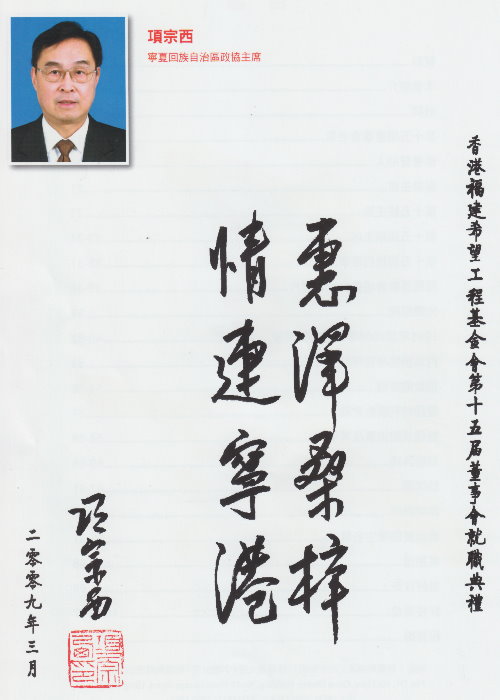 項宗西
寧夏回族自治區政協主席
香港福建希望工程基金會第十五届董事會就職典禮
惠澤桑梓
情連寧港
項宗西
二零零九年三月